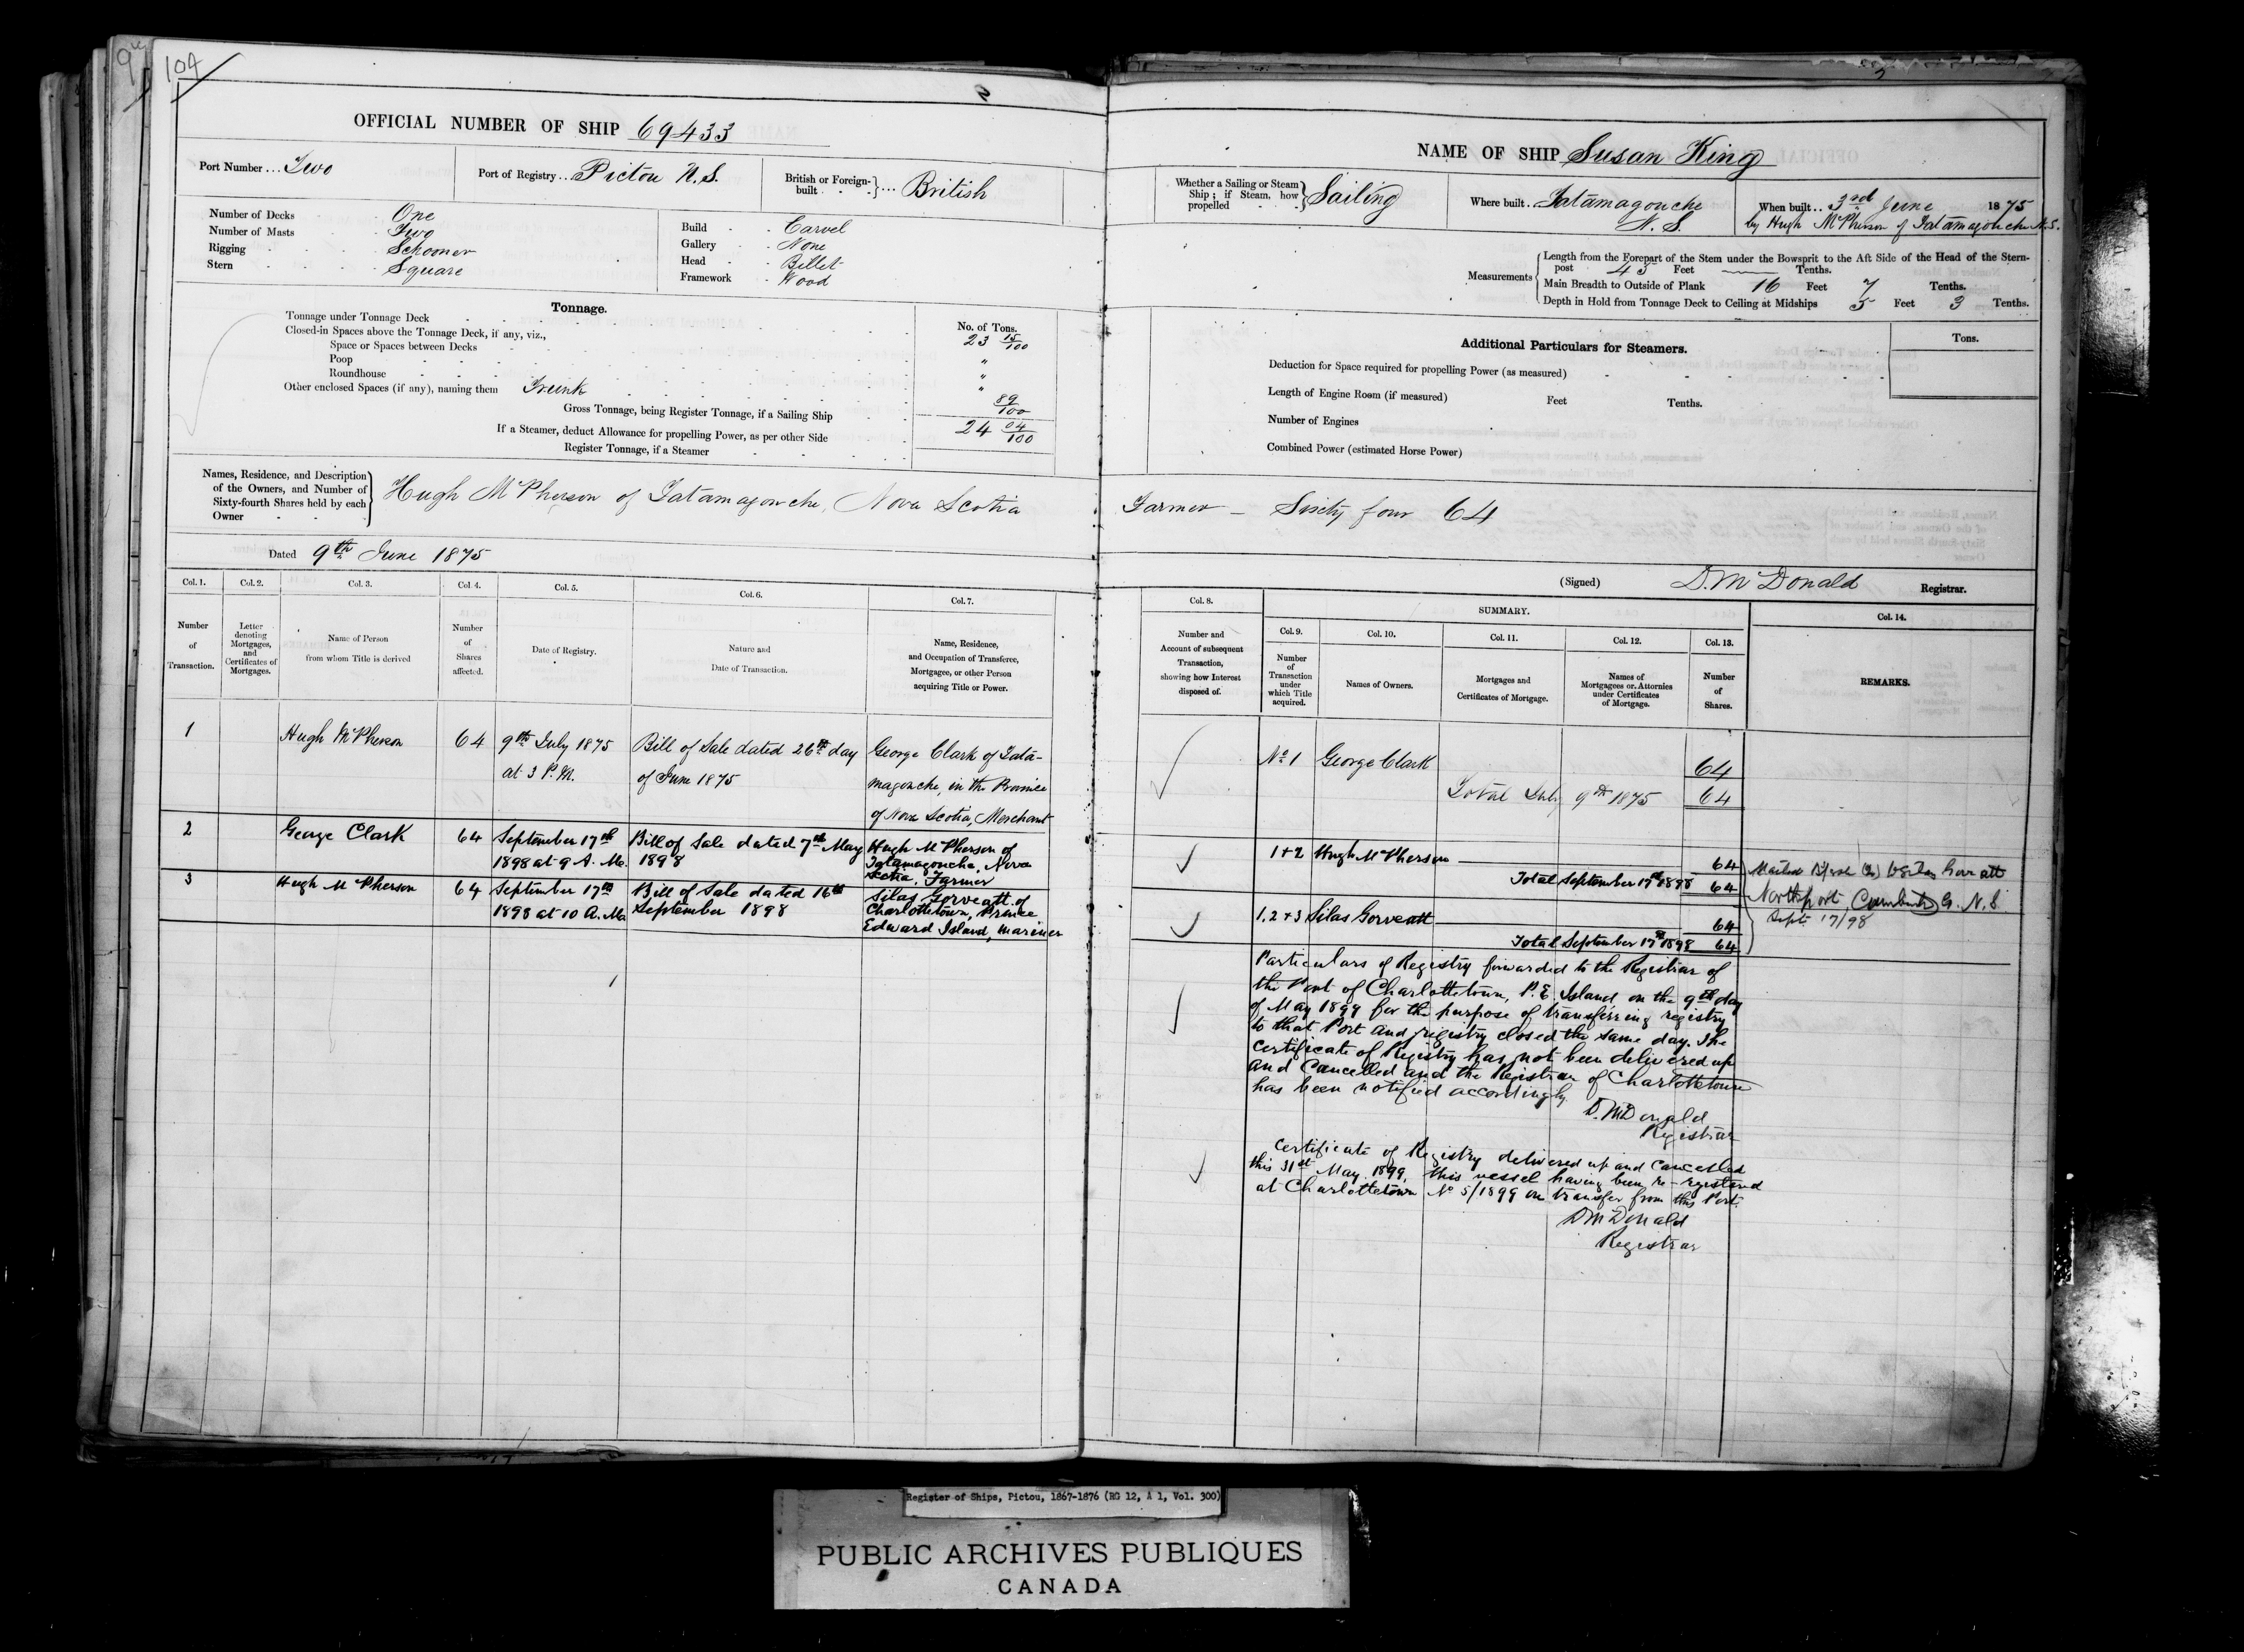 104
OFFICIAL NUMBER OF SHIP 69433
Port Number ... Two
Port of Registry .. Pictou N.S.
British or Foreign-built } ... British
Number of Decks One
Number of Masts Two
Rigging Schooner
Stern Square
Build Carvel
Gallery None
Head Billet
Framework Wood
Tonnage.
No. of Tons.
Tonnage under Tonnage Deck 23 15/100
Closed-in Spaces above the Tonnage Deck, if any, viz.,
Space or Spaces between Decks "
Poop "
Roundhouse "
Other enclosed Spaces (if any), naming them Trunk 89/100
Gross Tonnage, being Register Tonnage, if a Sailing Ship 24 04/100
If a Steamer, deduct Allowance for propelling Power, as per other Side
Register Tonnage, if a Steamer
Names, Residence, and Description
of the Owners, and Number of
Sixty-fourth Shares held by each
Owner
Hugh McPherson of Tatamagouche, Nova Scotia
Dated 9th June 1875
Col. 1. Col. 2. Col. 3. Col. 4. Col. 5. Col. 6. Col. 7.
Number of Transaction.
Letter denoting Mortgages, and Certificates of Mortgages.
Name of Person from whom Title is derived
Number of Shares affected.
Date of Registry.
Nature and Date of Transaction.
Name, Residence, and Occupation of Transferee, Mortgagee, or other Person acquiring Title or Power.
1 Hugh McPherson 64 9th July 1875 Bill of Sale dated 26th day George Clark of Tata-
at 3 P.M. of June 1875 magouche, in the Province
of Nova Scotia, Merchant
2 George Clark 64 September 17th Bill of Sale dated 7th May Hugh McPherson of
1898 at 9 A.M. 1898 Tatamagoucha, Nova
Scotia, Farmer
3 Hugh McPherson 64 September 17th Bill of Sale dated 16th Silas Gorveatt of
1898 at 10 A.M. September 1898 Charlottetown, Prince
Edward Island, Mariner
NAME OF SHIP Susan King
Whether a Sailing or Steam
Ship; if Steam, how
propelled
Sailing
Where built. Tatamagouche
N.S.
When built.. 3rd June 1875
by Hugh McPherson of Tatamagouche N.S.
Measurements
Length from the Forepart of the Stem under the Bowsprit to the Aft Side of the Head of the Stern-
post 45 Feet Tenths.
Main Breadth to Outside of Plank 16 Feet 7 Tenths.
Depth in Hold from Tonnage Deck to Ceiling at Midships 5 Feet 3 Tenths.
Additional Particulars for Steamers.
Tons.
Deduction for Space required for propelling Power (as measured)
Length of Engine Room (if measured) Feet Tenths.
Number of Engines
Combined Power (estimated Horse Power)
Farmer – Sixty four 64
(Signed) D. McDonald Registrar.
Col. 8.
SUMMARY.
Col. 9. Col. 10. Col. 11. Col. 12. Col. 13. Col. 14.
Number and Account of subsequent Transaction, showing how Interest disposed of.
Number of Transaction under which Title acquired.
Names of Owners.
Mortgages and Certificates of Mortgage.
Names of Mortgagees or Attornies under Certificates of Mortgage.
Number of Shares.
REMARKS.
No 1 George Clark 64
Total July 9th 1875 64
1+2 Hugh McPherson 64
Total September 17th 1898 64
1, 2 + 3 Silas Gorveatt 64
Total September 17th 1898 64
Northport, N.S.
Sept 17/98
Particulars of Registry forwarded to the Registrar of
the Port of Charlottetown, P.E. Island, on the 9th day
of May 1899 for the purpose of transferring registry
to that Port and registry closed the same day. The
Certificate of Registry has not been delivered up
and Cancelled and the Registrar of Charlottetown
has been notified accordingly.
D. McDonald
Registrar
Certificate of Registry delivered up and cancelled
this 31st May 1899, this vessel having been re-registered
at Charlottetown No 5/1899 on transfer from this Port.
D McDonald
Registrar
Register of Ships, Pictou, 1867-1876 (RG 12, A 1, Vol. 300)
PUBLIC ARCHIVES PUBLIQUES
CANADA